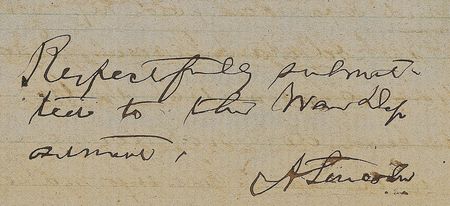 Respectfully submit-
ted to the War Dep
artment.
A. Lincoln